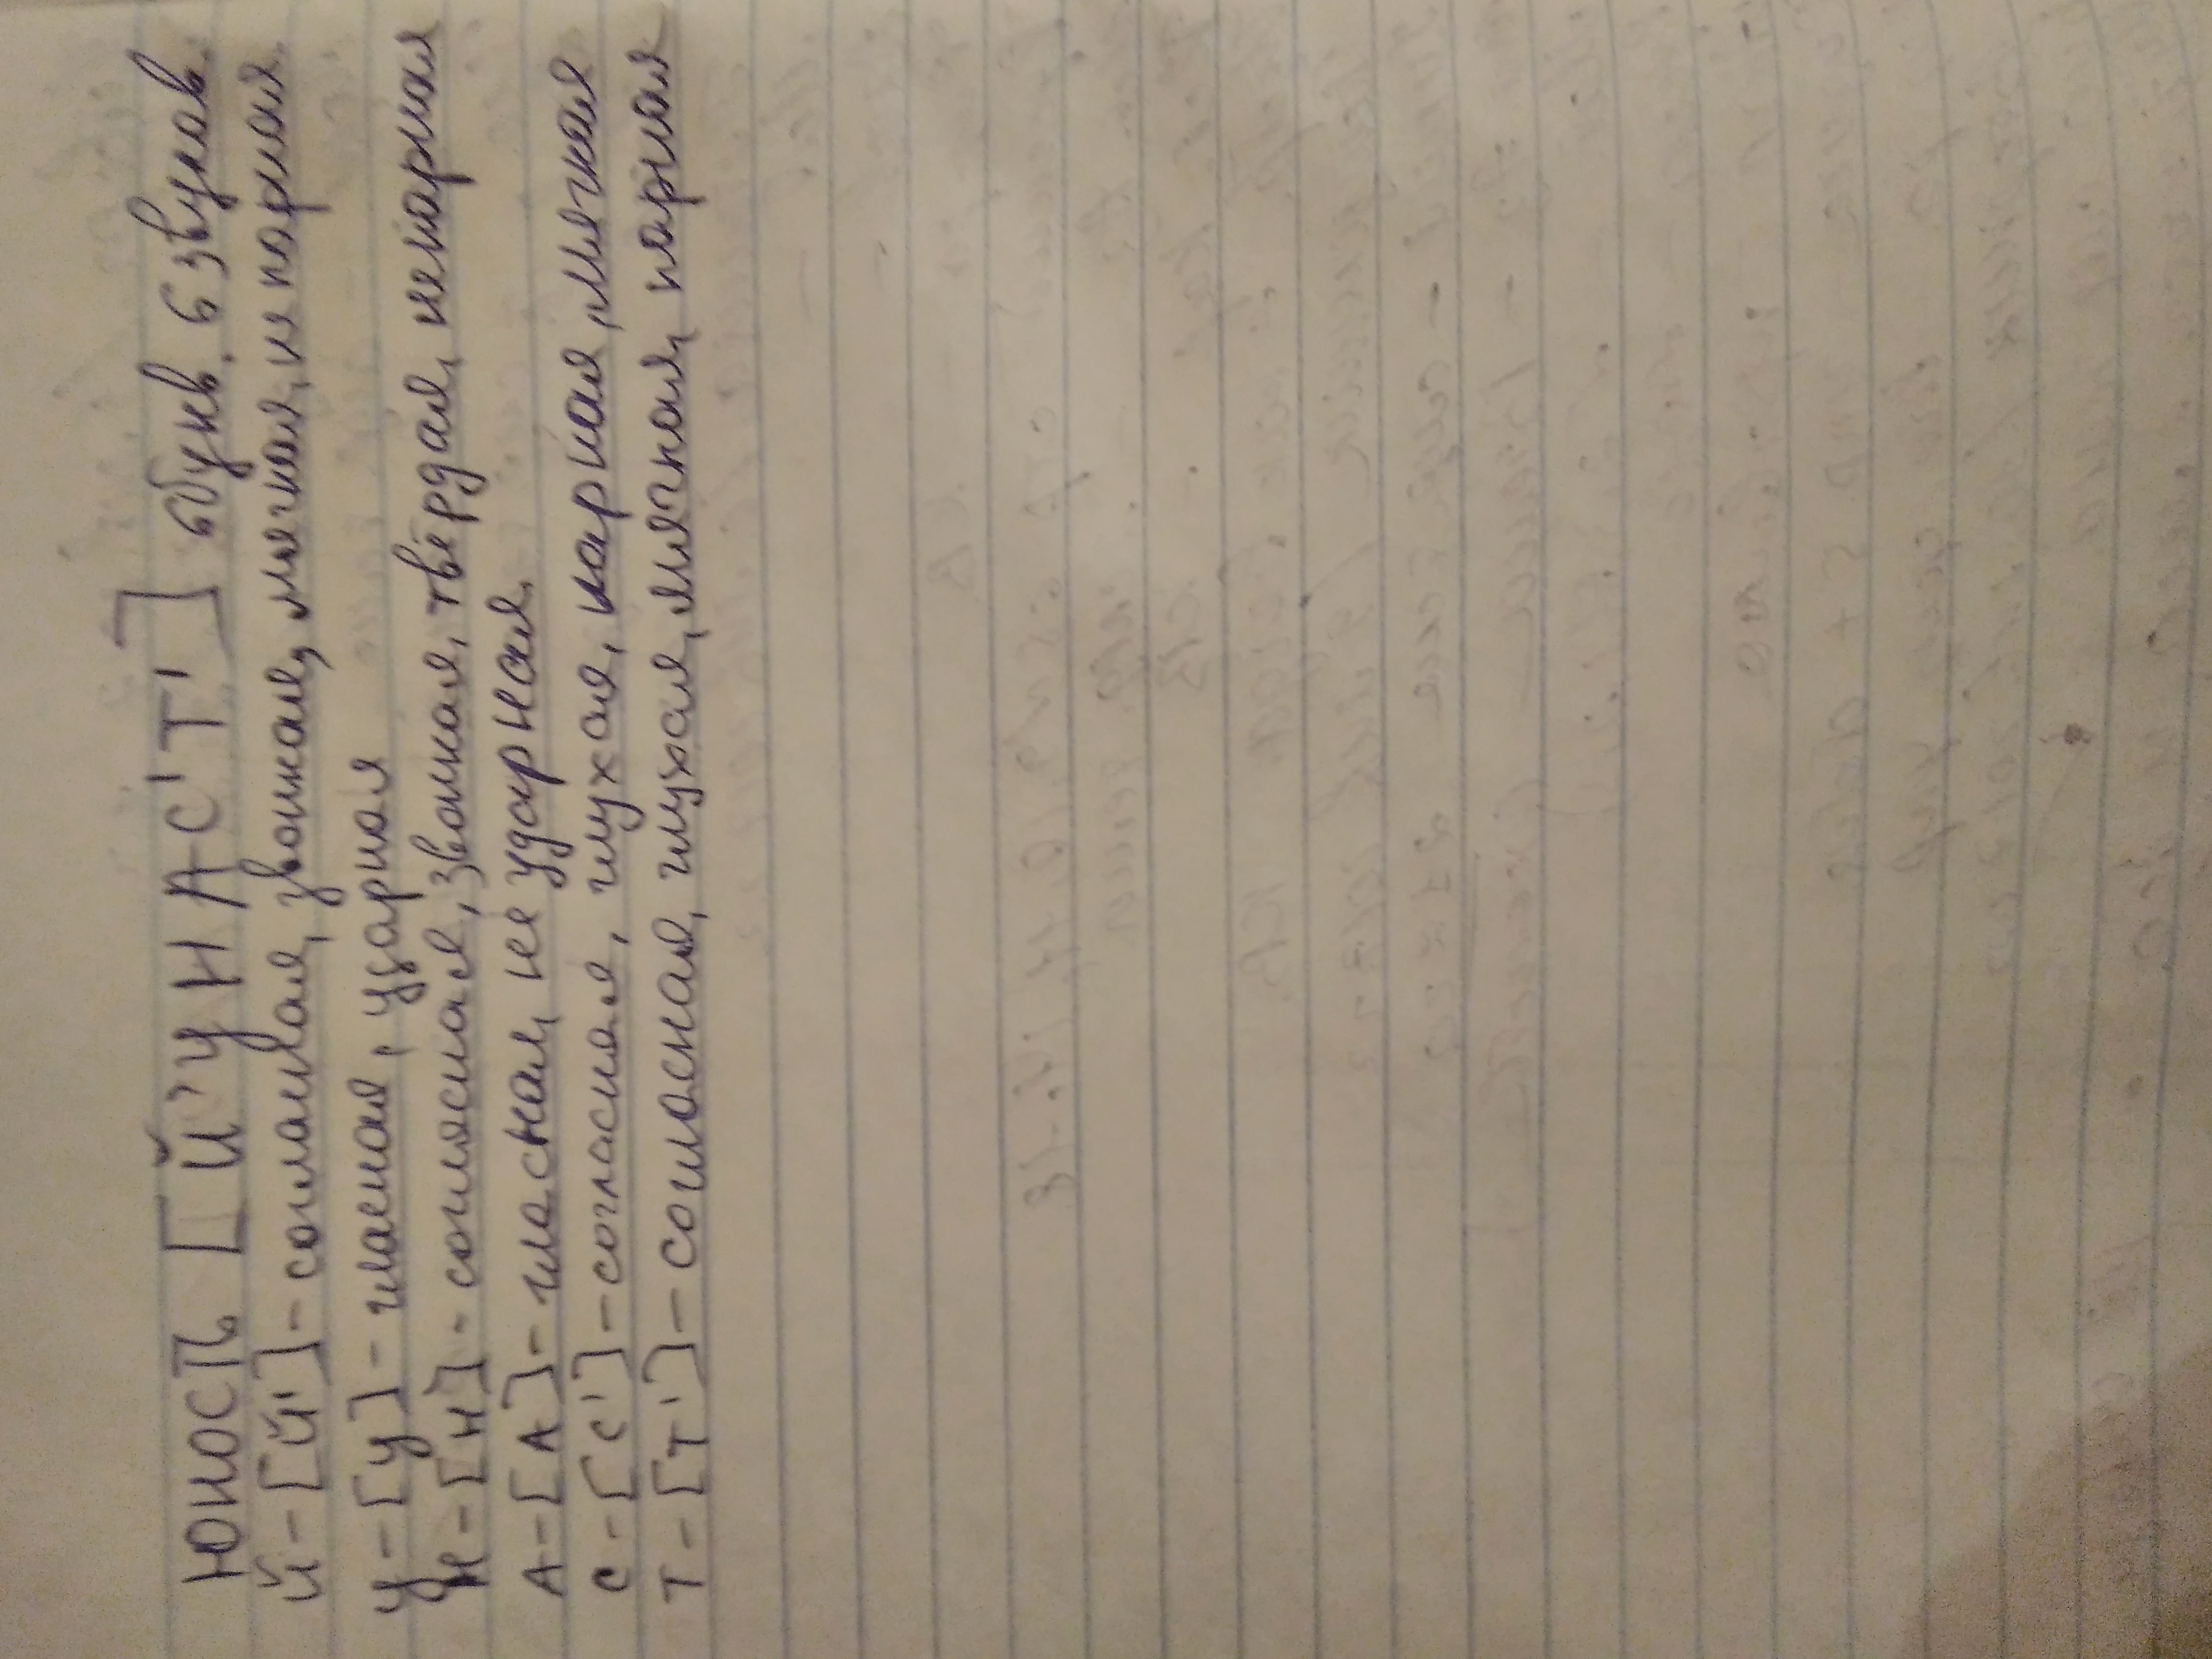 ЮНОСТЬ [Й'УНАС'Т'] 6 букв. 6 звуков.
Й-[Й']-согласная, звонкая, мягкая, не парная
У-[У]-гласная, ударная
Н-[Н]-согласная, звонкая, твёрдая, непарная
А-[А]-гласная, не ударная.
С-[С']-согласная, глухая, парная, мягкая
Т-[Т']-согласная, глухая, мягкая, парная